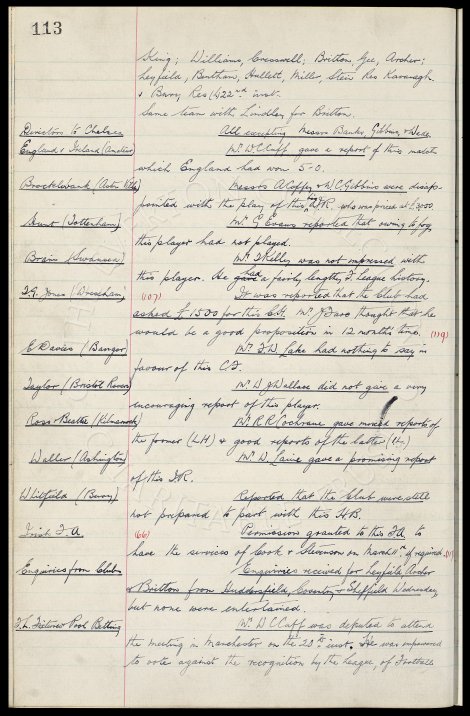 113
King; Williams, Cresswell; Britton, Gee, Archer;
Leyfield, Bentham, Hullett, Miller, Stein Res Kavanagh.
v Bury, Res (H) 22nd inst.
Same team with Lindley for Britton.
Directors to Chelsea All excepting Messrs Banks, Gibbins, &
England v Ireland (Amateur) Mr. W.C. Cuff gave a report of this match
which England had won 5-0.
Brocklebank (Aston Villa) Messrs A. Coffey & W.C. Gibbins were disap-
pointed with the play of this I/R. who was priced at £3000
Hunt (Tottenham) Mr. G. Evans reported that owing to fog
this player had not played.
Brain (Swansea) Mr. T Kelly was not impressed with
this player. He had a fairly lengthy F. League history.
T.G. Jones (Wrexham) (107) It was reported that the Club had
asked £1500 for this C.H. Mr. thought that he
would be a good proposition in 12 months time. (119)
E Davies (Bangor) Mr. F.W. Lake had nothing to say in
favour of this C.F.
Taylor (Bristol Rovers) Mr. D. Wallace did not give a very
encouraging report of this player.
Ross-Beattie (Kilmarnock) Mr. R.R. Cochrane gave mixed reports of
the former (L.H) & good reports of the latter.
Waller (Ashington) Mr. D. gave a promising report
of this I.R.
Whitfield (Bury) Reported that the Club were still
not prepared to part with this H.B.
Irish F.A. (66) Permission granted to this F.A to
have the services of Cook & Stevenson on March if required.
Enquiries from Clubs Enquiries received for Leyfield, Archer
& Britton from Huddersfield, Coventry, & Sheffield Wednesday
but none were entertained.
F.L. Fixtures Pool Betting Mr. W.C. Cuff was deputed to attend
the meeting in Manchester on the 20th inst. He was empowered
to vote against the recognition by the League, of Football